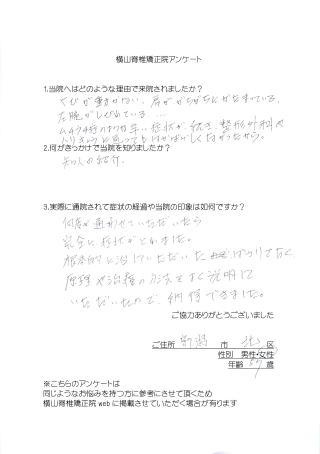 横山脊椎矯正院アンケート
1.当院へはどのような理由で来院されましたか?
くびが動かない、肩がガチガチにかたまっている、
左腕がしびれている…
症状が続き、整形外科や
2.何がきっかけで当院を知りましたか?
知人の紹介。
3.実際に通院されて症状の経過や当院の印象は如何ですか?
何度か通わせていただいたら
完全に症状がとれました。
根本的に治していただいたばかりでなく
原理や治療の方法をよく説明して
いただいたので、納得できました。
ご協力ありがとうございました
ご住所 新潟 市 北 区
性別 男性・女性
年齢 歳
※こちらのアンケートは
同じようなお悩みを持つ方に参考にさせて頂くため
横山脊椎矯正院 web に掲載させていただく場合が有ります